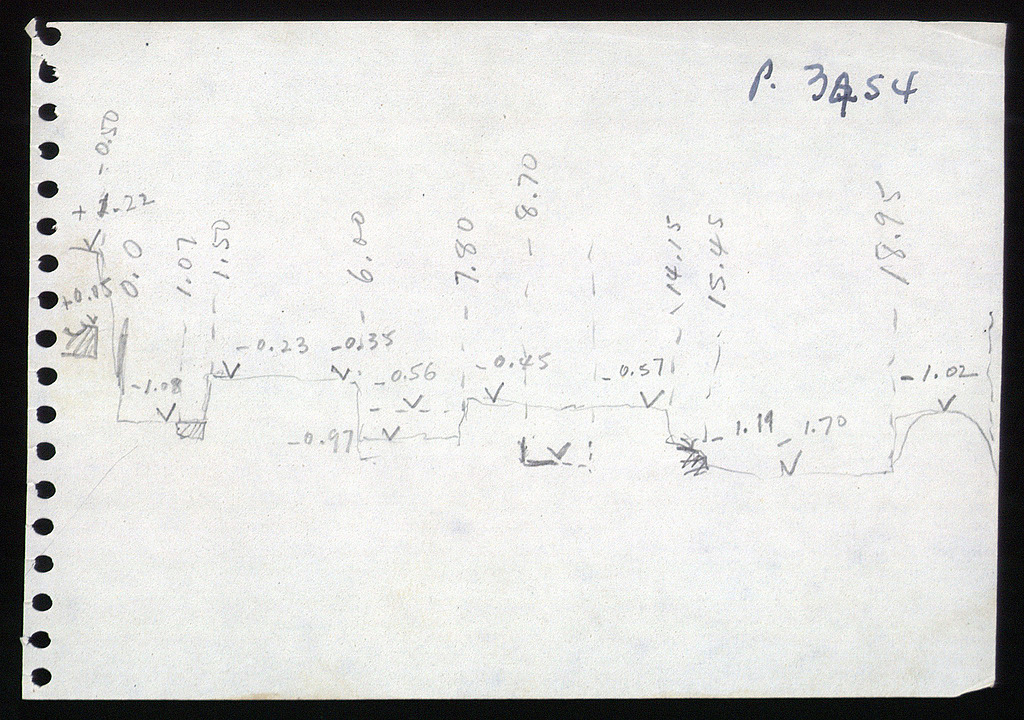 P. 3454
-0.50
+1.22
0.0
1.07
1.50
6.00
7.80
-8.70
14.15
15.45
18.95
+0.05
-1.08
-0.23
-0.35
-0.56
-0.97
-0.45
-0.57
-1.19
-1.70
-1.02